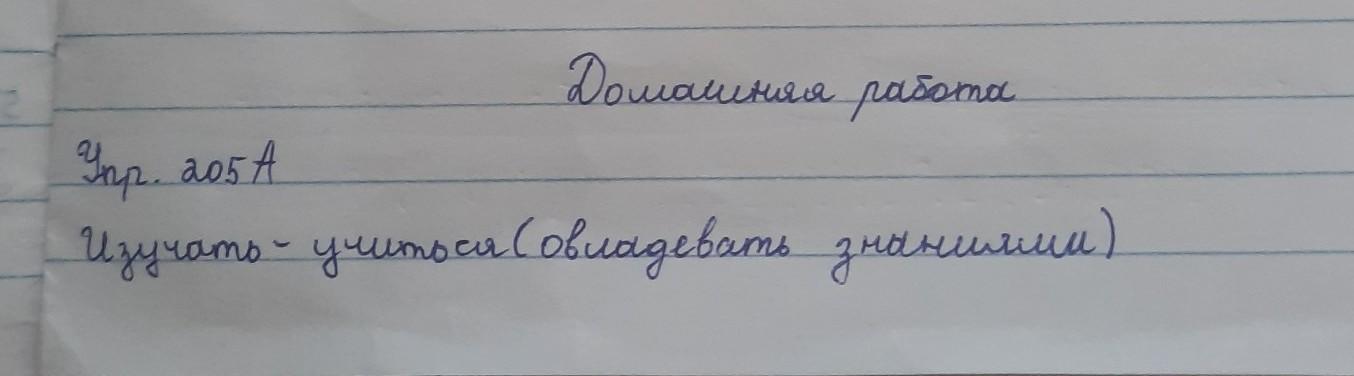 Домашняя работа
Упр. 205 А
Изучать - учиться (овладевать знаниями)